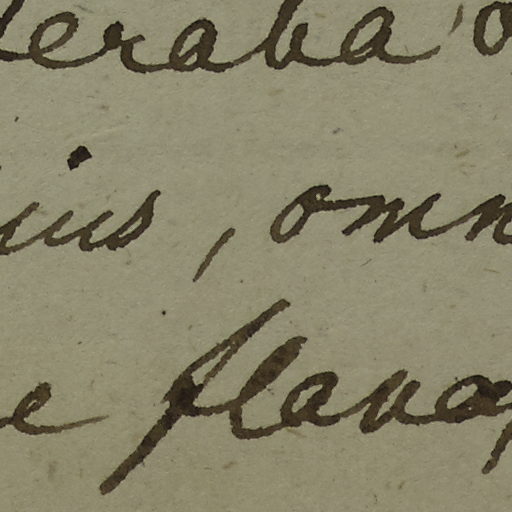 eraba
ius, omn
e flava